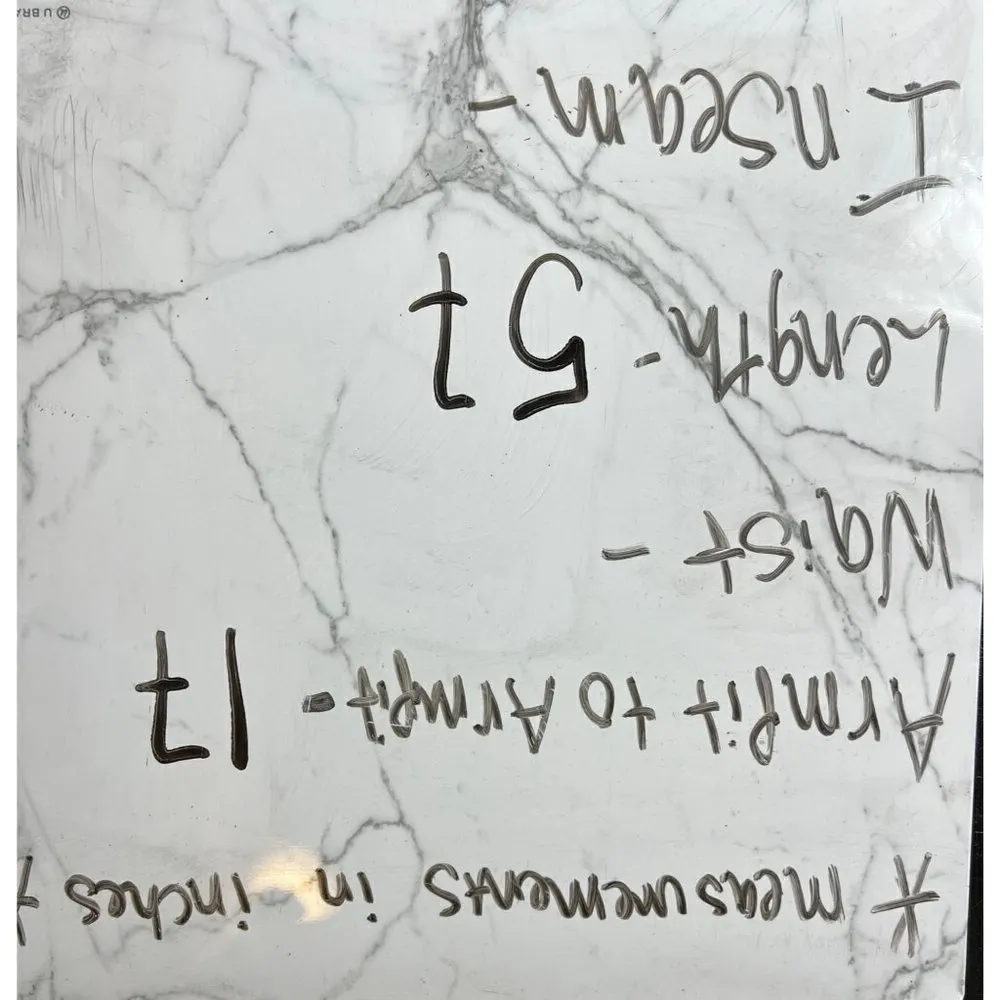 * measurements in inches *
Armpit to Armpit - 17
Waist -
Length - 57
Inseam -
U BRA